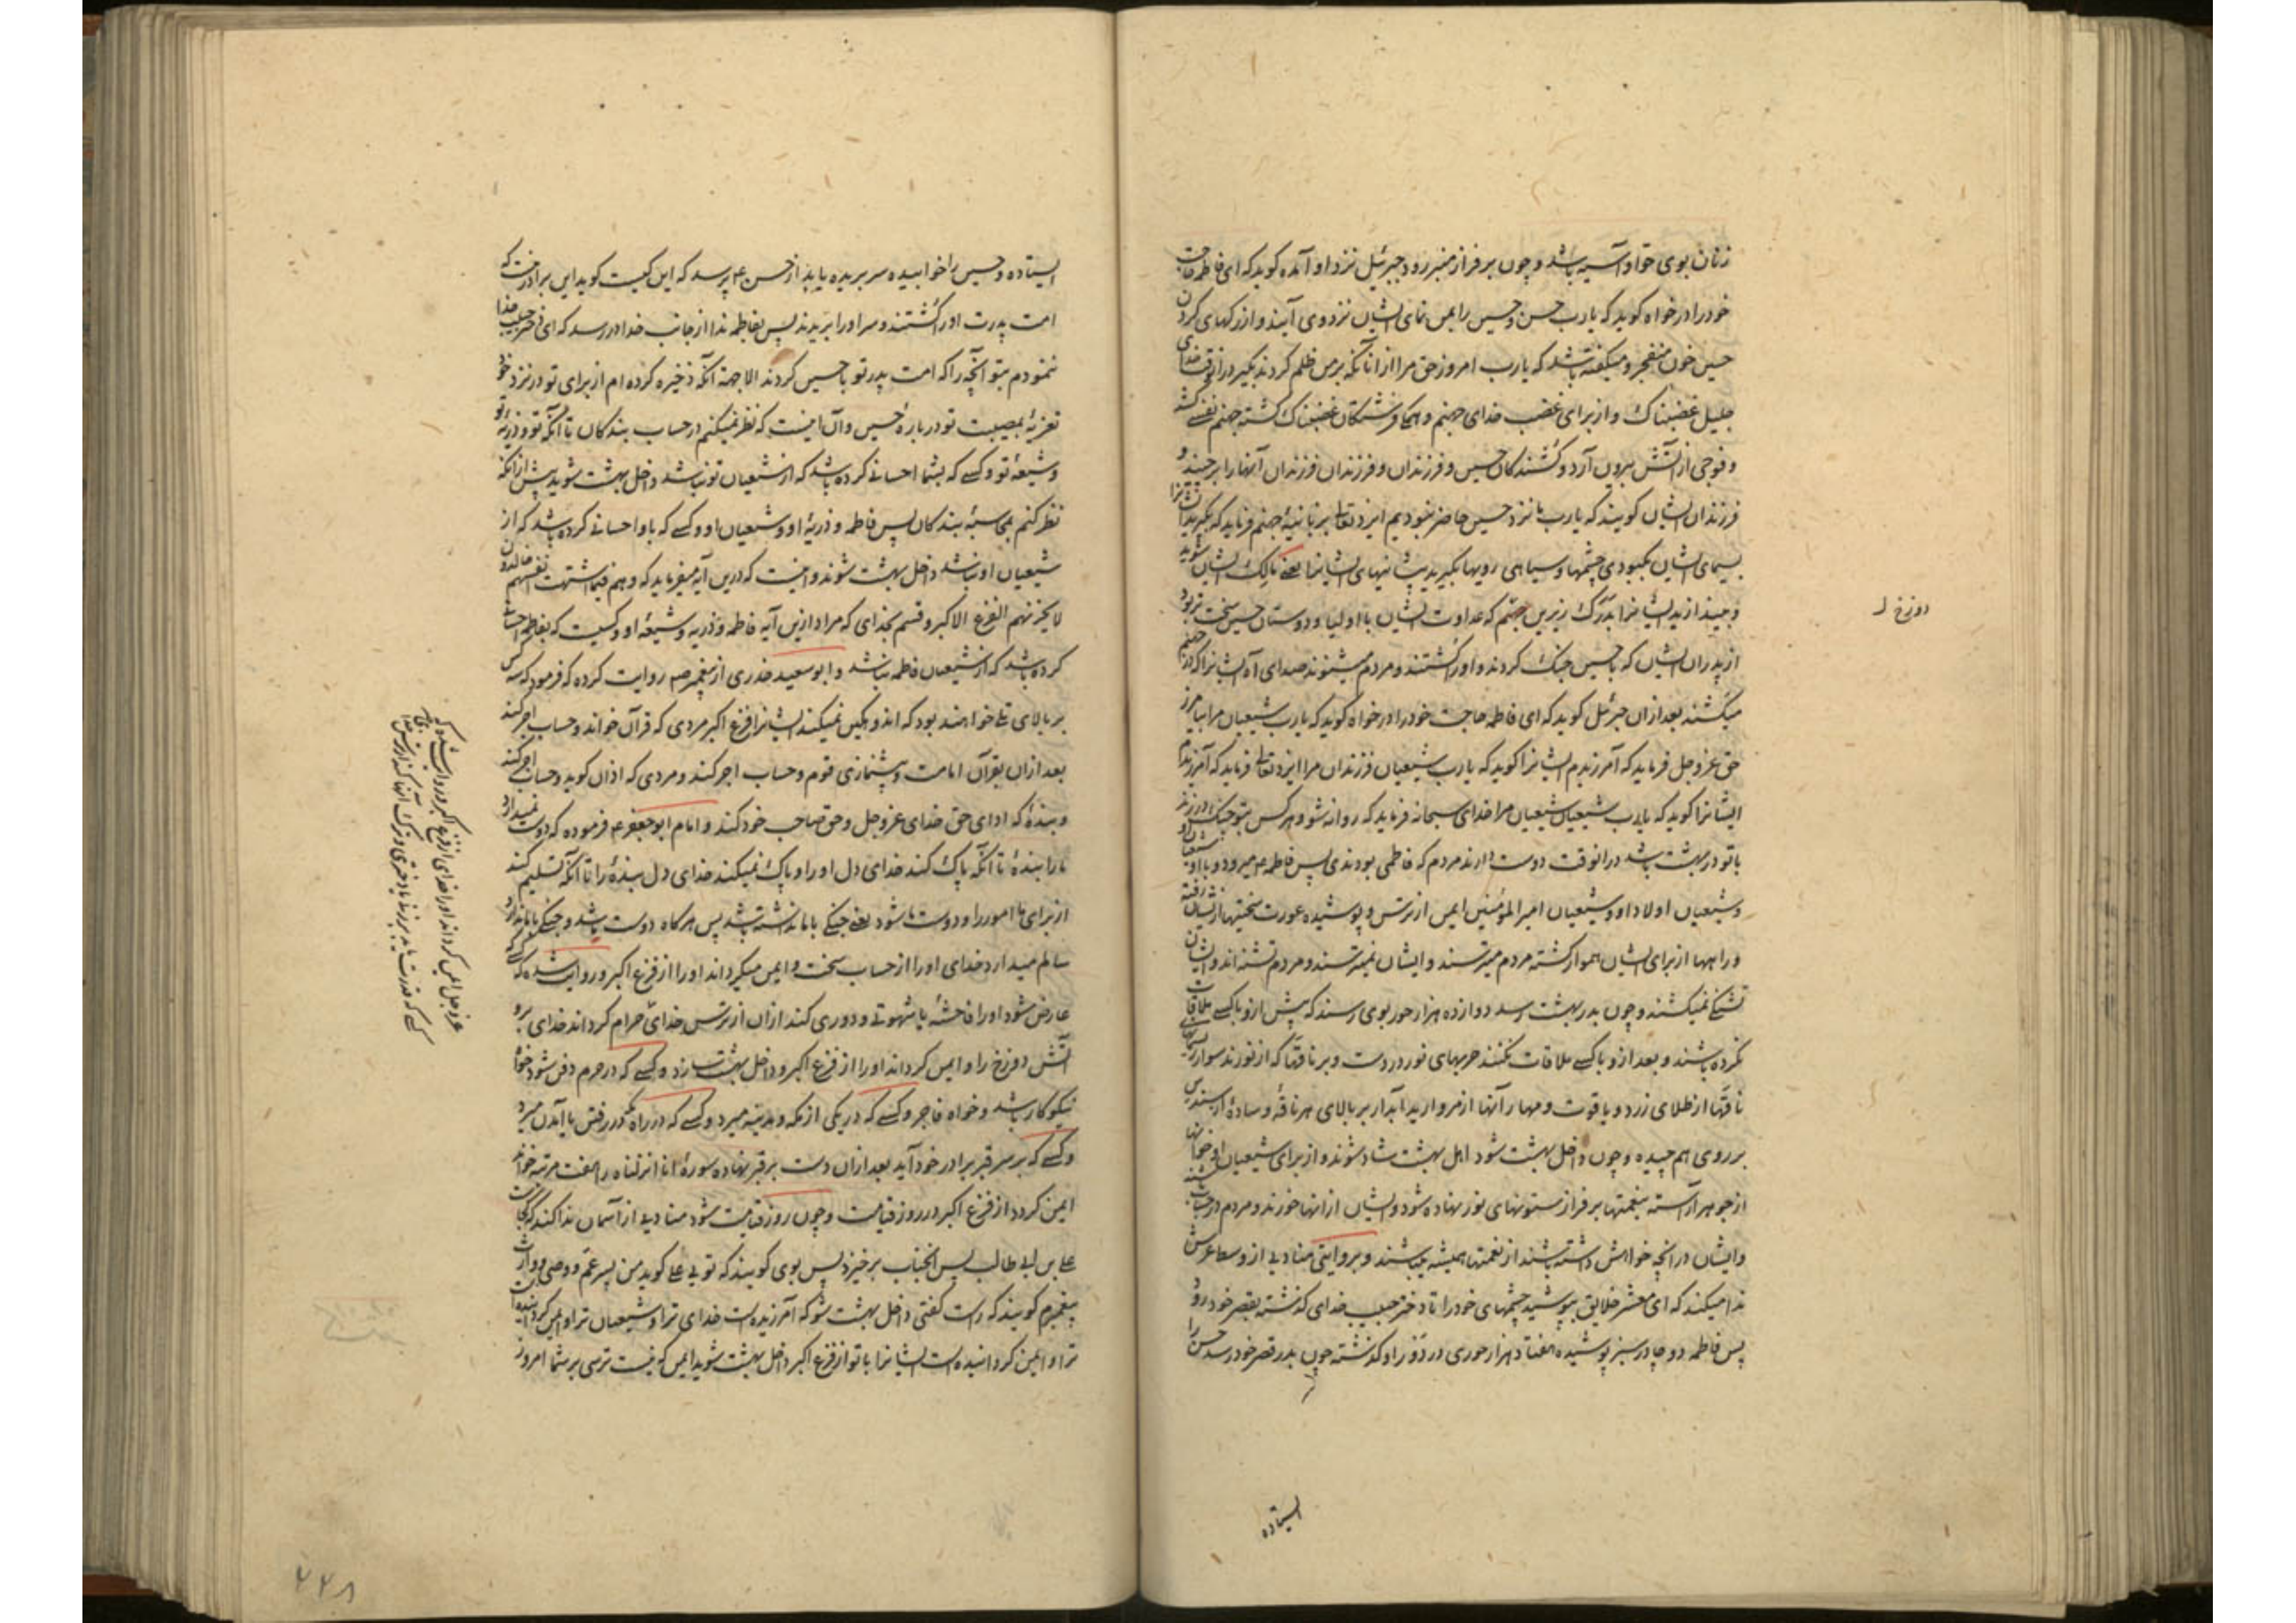 زنان بوی حوا و آسیه باشد و چون بر فراز منبر رود جبرئیل نزد او آمده کوید که ای فاطمه حاجت
خود را درخواه کوید که یا رب حسن و حسین را بمن نمای ایشان نزد وی آیند و از رکهای کردن
حسین خون منفجر و میکفته باشد که یا رب امروز حق مرا از آنانکه بر من ظلم کردند بکیر در آنوقت خدای
جلیل غضبناک و از برای غضب خدای جهنم و همکی فرشتکان غضبناک کشته جهنم نفسی کشد
و فوجی از آتش بیرون آرد و کشندکان حسین و فرزندان و فرزندان فرزندان آنها را برچیند و
فرزندان ایشان کویند که یا رب ما نزد حسین حاضر نبودیم ایزد تعالی بزبانیهٔ جهنم فرماید که بکیرید ایشانرا
بسیمای ایشان بکبودی چشمها و سیاهی رویها بکیرید پیشانیهای ایشانرا یعنی مالک ایشان شوید
و بیندازید ایشانرا بدرک زیرین جهنم که عداوت ایشان با اولیا و دوستان حسین سخت تر بود
از پدران ایشان که با حسین جنک کردند و او را کشتند و مردم میشنوند صدای آه ایشانرا که در جهنم
میکشند بعد از آن جبرئیل کوید که ای فاطمه حاجت خود را درخواه کوید که یا رب شیعیان مرا بیامرز
حق عزوجل فرماید که آمرزیدم ایشانرا کوید که یا رب شیعیان فرزندان مرا ایزد تعالی فرماید که آمرزیدم
ایشانرا کوید که یا رب شیعیان شیعیان مرا خدای سبحانه فرماید که روانه شو و هر کس بتو چنک در زند
با تو در بهشت باشد در آنوقت دوست دارند مردم که فاطمی بودندی پس فاطمه ع میرود و با او شیعیان او
و شیعیان اولاد او و شیعیان امیر المؤمنین ایمن از ترس و پوشیده عورت سختیها از ایشان رفته
و راهها از برای ایشان هموار کشته مردم میترسند و ایشان نمیترسند و مردم تشنه اند و ایشان
تشنکی نمیکشند و چون بدر بهشت رسد دوازده هزار حور بوی رسند که پیش از و با کسی ملاقات
نکرده باشند و بعد از و با کسی ملاقات نکنند حربهای نور در دست و بر ناقها که از نورند سوار
ناقها از طلای زرد و یاقوت و مهار آنها از مروارید آبدار بر بالای هر ناقهٔ وسادهٔ از سندس
بر روی هم چیده و چون داخل بهشت شود اهل بهشت شاد شوند و از برای شیعیان او خوانها
از جوهر آراسته بنعمتها بر فراز ستونهای نور نهاده شود و ایشان از آنها خورند و مردم در حساب باشند
و ایشان در آنچه خواهش داشته باشند از نعمتها همیشه باشند و بروایتی منادیی از وسط عرش
ندا میکند که ای معشر خلایق بپوشید چشمهای خود را تا دختر حبیب خدای کذشته بقصر خود رود
پس فاطمه دو چادر سبز پوشیده هفتاد هزار حوری در دور او کذشته چون بدر قصر خود رسد حسن را
ایستاده
دوزخ
ایستاده و حسین را خوابیده سر بریده یابد از حسن ع پرسد که این کیست کوید این برادر منست که
امت پدرت او را کشتند و سر او را بریدند پس بفاطمه ندا از جانب خدا در رسد که ای دختر حبیب خدا
ننمودم بتو آنچه را که امت پدر تو با حسین کردند الا جهة آنکه ذخیره کرده ام از برای تو در نزد خود
تعزیهٔ بمصیبت تو دربارهٔ حسین و آن اینست که نظر نمیکنم در حساب بندکان تا آنکه تو و ذریهٔ تو
و شیعهٔ تو و کسی که بشما احسانی کرده باشد که از شیعیان تو نباشد داخل بهشت شوید پیش از آنکه
نظر کنم بمحاسبهٔ بندکان پس فاطمه و ذریهٔ او و شیعیان او و کسی که باو احسانی کرده باشد که از
شیعیان او نباشد داخل بهشت شوند و اینست که درین آیه میفرماید که و هم فیما اشتهت انفسهم خالدون
لا یحزنهم الفزع الاکبر و قسم بخدای که مراد ازین آیه فاطمه و ذریه و شیعهٔ او و کسیست که بفاطمه احسان
کرده باشد که از شیعیان فاطمه نباشد و ابو سعید خدری از پیغمبر صم روایت کرده که فرمود که سه کس
بر بالای تلی خواهند بود که اندوهکین نمیکند ایشانرا فزع اکبر مردی که قرآن خواند و حساب اجر کند
بعد از آن بقرآن امامت و پیشنمازی قوم و حساب اجر کند و مردی که اذان کوید و حساب اجر کند
و بندهٔ که ادای حق خدای عزوجل و حق صاحب خود کند و امام ابو جعفر ع فرموده که دوست نمیدارد
ما را بندهٔ تا آنکه پاک کند خدای دل او را و پاک نمیکند خدای دل بندهٔ را تا آنکه تسلیم کند
از برای ما امور را و دوست ما شود یعنی جنکی با ما نداشته باشد پس هرکاه دوست باشد و جنکی با ما ندارد
سالم میدارد خدای او را از حساب سخت و ایمن میکرداند او را از فزع اکبر و روایت شده که کسی که
عارض شود او را فاحشهٔ یا شهوتی و دوری کند از آن از ترس خدای حرام کرداند خدای برو
آتش دوزخ را و ایمن کرداند او را از فزع اکبر و داخل بهشت سازد و کسی که در حرم دفن شود خواه
نیکوکار باشد و خواه فاجر و کسی که در یکی از مکه و مدینه میرد و کسی که در راه مکه در رفتن یا آمدن میرد
و کسی که بر سر قبر برادر خود آید بعد از آن دست بر قبر نهاده سورهٔ انا انزلناه را هفت مرتبه خواند
ایمن کردد از فزع اکبر در روز قیامت و چون روز قیامت شود منادیی از آسمان ندا کند که کجاست
علی بن ابی طالب پس آنجناب برخیزد پس بوی کویند که تویی علی کوید من پسر عم و وصی و وارث
پیغمبرم کویند که راست کفتی داخل بهشت شو که آمرزیده است خدای ترا و شیعیان ترا و ایمن کردانیده است
ترا و ایمن کردانیده است ایشانرا با تو از فزع اکبر داخل بهشت شوید ایمن که نیست ترسی بر شما امروز
عزوجل ایمن کرداند او را خدای از فزع اکبر و وارد شده که
کسی که قدرت یابد بر زنا با دختری و ترک آن کند از ترس خدا
۲۲۸